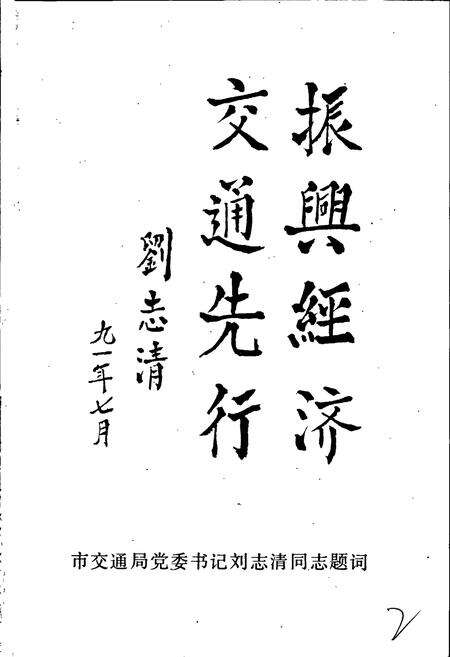 振興經济
交通先行
劉志清
九一年七月
市交通局党委书记刘志清同志题词
2